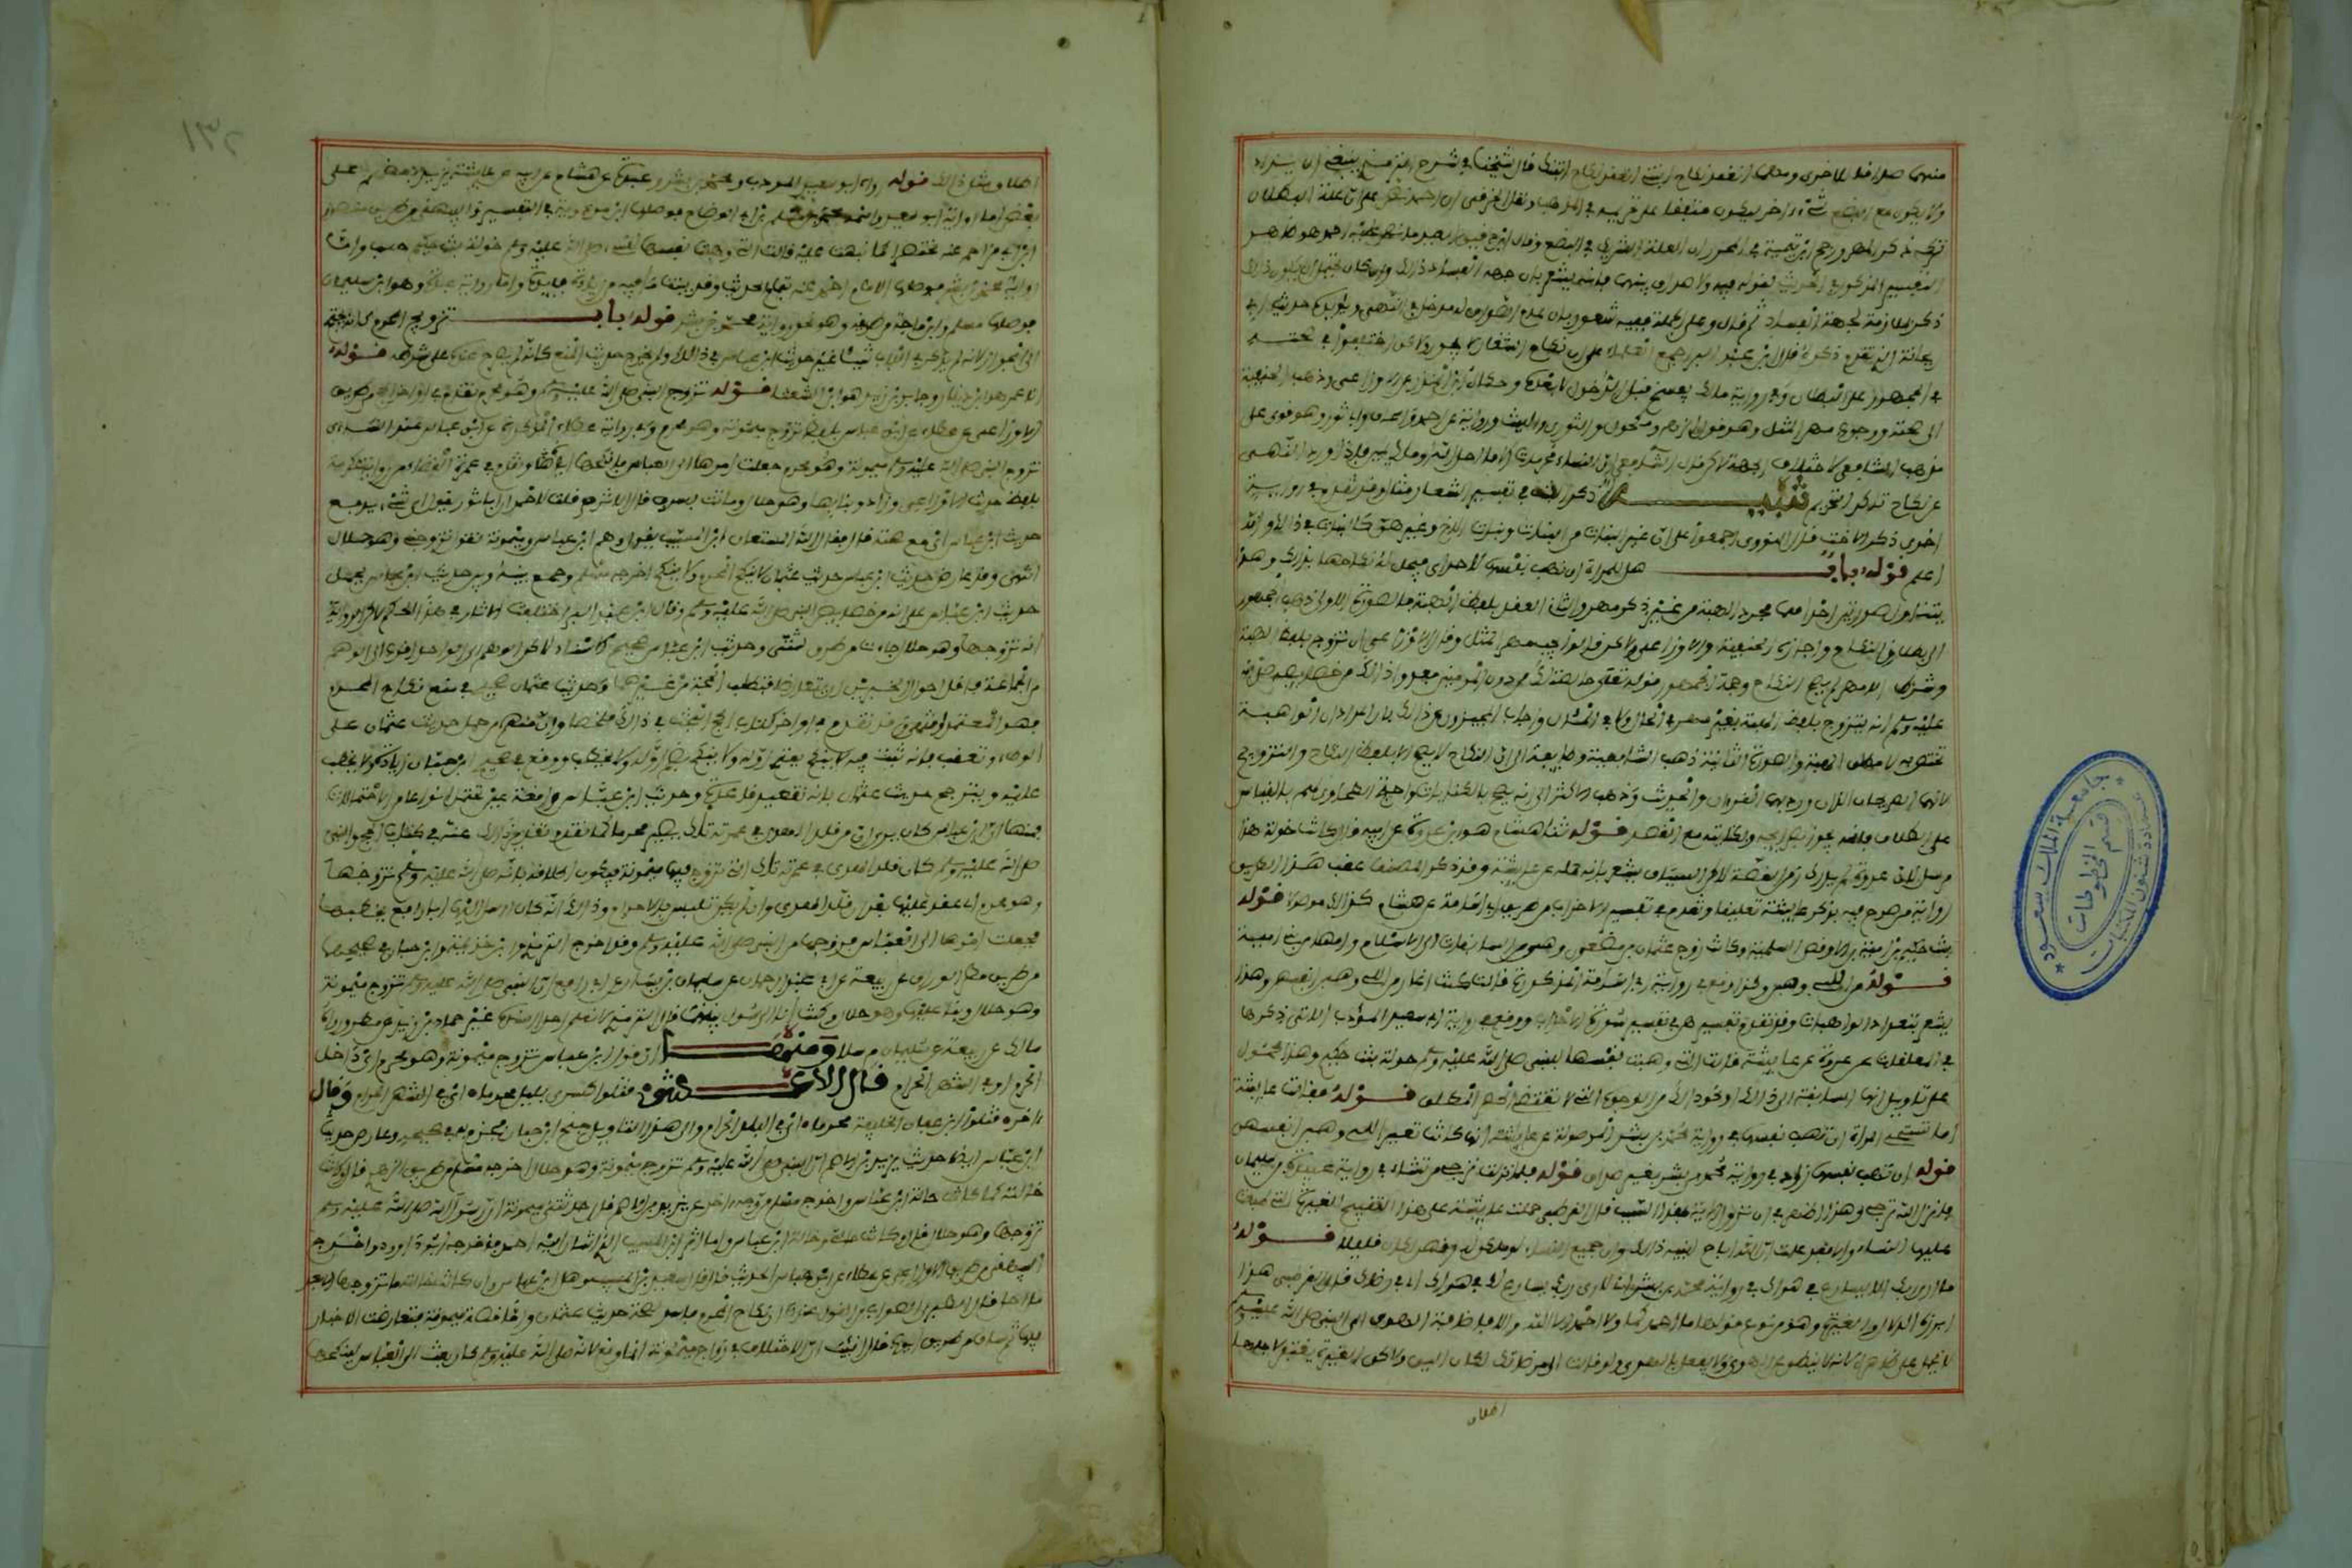 منهما صداقا للأخرى ومعلقا انعقد نكاح ابنتي انعقد نكاح ابنتك قال شيخنا في شرح الترمذي ينبغي ان يزاد
ولا يكون مع البضع شيء اخر ليكون متفقا على تحريمه في المذهب ونقل الخرقي ان احمد نص على ان علة البطلان
ترك ذكر المهر ورجح ابن تيمية في المحرر ان العلة التشريك في البضع وقال ابن دقيق العيد ما نص عليه احمد هو ظاهر
التفسير المذكور في الحديث لقوله فيه ولا صداق بينهما فانه يشعر بان جهة الفساد ذلك وان كان يحتمل ان يكون ذلك
ذكر لملازمته لجهة الفساد ثم قال وعلى الجملة ففيه شعور بان عدم الصداق له مدخل في النهي ويؤيده حديث ابي
ريحانة الذي تقدم ذكره قال ابن عبد البر اجمع العلماء على ان نكاح الشغار لا يجوز ولكن اختلفوا في صحته
فالجمهور على البطلان وفي رواية مالك يفسخ قبل الدخول لا بعده وحكاه ابن المنذر عن الاوزاعي وذهب الحنفية
الى صحته ووجوب مهر المثل وهو قول الزهري ومكحول والثوري والليث ورواية عن احمد واسحاق وابي ثور وهو قوي على
مذهب الشافعي لاختلاف الجهة لكن قال الشافعي ان النساء محرمات الا ما احل الله او ملك يمين فاذا ورد النهي
عن نكاح تاكد التحريم تنبيه ذكر البنت في تفسير الشغار مثال وقد تقدم في رواية
اخرى ذكر الاخت قال النووي اجمعوا على ان غير البنات من الاخوات وبنات الاخ وغيرهن كالبنات في ذلك والله
اعلم قوله باب هل للمراة ان تهب نفسها لاحد اي فيحل له نكاحها بذلك وهذا
يتناول صورتين احداهما مجرد الهبة من غير ذكر مهر والثاني العقد بلفظ الهبة فالصورة الاولى ذهب الجمهور
الى بطلان النكاح واجازه الحنفية والاوزاعي ولكن قالوا يجب مهر المثل وقال الاوزاعي ان تزوج بلفظ الهبة
وشرط ان لا مهر لم يصح النكاح وحجة الجمهور قوله تعالى خالصة لك من دون المومنين فعدوا ذلك من خصائصه صلى الله
عليه وسلم انه يتزوج بلفظ الهبة بغير مهر في الحال ولا في المآل واجاب المجيزون عن ذلك بان المراد ان الواهبة
تختص به لا مطلق الهبة والصورة الثانية ذهب الشافعية وطائفة الى ان النكاح لا يصح الا بلفظ النكاح او التزويج
لانهما الصريحان اللذان ورد بهما القران والحديث وذهب الاكثر الى انه يصح بالكنايات واحتج الطحاوي لهم بالقياس
على الطلاق فانه يجوز بصرائحه وبكناياته مع القصد قوله ثنا هشام هو ابن عروة عن ابيه قال كانت خولة هذا
مرسل لان عروة لم يدرك زمن القصة لكن السياق يشعر بانه حمله عن عايشة وقد ذكر المصنف عقب هذا الطريق
رواية من صرح فيه بذكر عايشة تعليقا وتقدم في تفسير الاحزاب من طريق ابي اسامة عن هشام كذلك موصولا قوله
بنت حكيم بن امية بن الاوقص السلمية وكانت زوج عثمان بن مظعون وهي من السابقات الى الاسلام وامها من بني امية
قوله من اللائي وهبن وكذا وقع في رواية ابي اسامة المذكورة قالت كنت اغار من اللائي وهبن انفسهن وهذا
يشعر بتعدد الواهبات وقد تقدم تفسيرهن في تفسير سورة الاحزاب ووقع في رواية ابي سعيد المؤدب الاتي ذكرها
في المعلقات عن عروة عن عايشة قالت التي وهبت نفسها للنبي صلى الله عليه وسلم خولة بنت حكيم وهذا محمول
على تاويل انها السابقة الى ذلك او نحو ذلك من الوجوه التي لا تقتضي الحصر المطلق قوله فقالت عايشة
اما تستحي المراة ان تهب نفسها في رواية محمد بن بشر الموصولة عن عايشة انها كانت تعير اللائي وهبن انفسهن
قوله ان تهب نفسها زاد في رواية محمد بن بشر بغير صداق قوله فلما نزلت ترجي من تشاء في رواية عبدة بن سليمان
فانزل الله ترجي وهذا اظهر في ان نزول الاية بهذا السبب قال القرطبي حملت عايشة على هذا التقبيح الغيرة التي طبعت
عليها النساء والا فقد علمت ان الله اباح لنبيه ذلك وان جميع النساء لو ملكن له رقهن لكان قليلا قوله
ما ارى ربك الا يسارع في هواك في رواية محمد بن بشر اني لارى ربك يسارع لك في هواك اي في رضاك قال القرطبي هذا
ابرزه الدلال والغيرة وهو من نوع قولها ما احمدكما ولا احمد الا الله والا فاضافة الهوى الى النبي صلى الله عليه وسلم
لا تحمل على ظاهره لانه لا ينطق عن الهوى ولا يفعل بالهوى ولو قالت الى مرضاتك لكان اليق ولكن الغيرة يغتفر لاجلها
اطلاق
١٣٢
اطلاق مثل ذلك قوله رواه ابو سعيد المودب ومحمد بن بشر وعبدة عن هشام عن ابيه عن عايشة يزيد بعضهم على
بعض اما رواية ابي سعيد واسمه محمد بن مسلم بن ابي الوضاح فوصلها ابن مردويه في التفسير والبيهقي من طريق منصور
ابن ابي مزاحم عنه مختصرا كما نبهت عليه قالت التي وهبت نفسها للنبي صلى الله عليه وسلم خولة بنت حكيم حسب واما
رواية محمد بن بشر فوصلها الامام احمد عنه بتمام الحديث وقد بينت ما فيه من زيادة وفايدة واما رواية عبدة وهو ابن سليمان
فوصلها مسلم وابن ماجة من طريقه وهو نحو رواية محمد بن بشر قوله باب تزويج المحرم كانه يحتج
الى الجواز لانه لم يذكر في الباب شيئا غير حديث ابن عباس في ذلك ولم يخرج حديث المنع كانه لم يصح عنده على شرطه قوله
انا عمرو هو ابن دينار وجابر بن زيد هو ابو الشعثاء قوله تزوج النبي صلى الله عليه وسلم وهو محرم تقدم في اواخر الحج من طريق
الاوزاعي عن عطاء عن ابن عباس بلفظ تزوج ميمونة وهو محرم وفي رواية عطاء المذكورة عن ابن عباس عند النسائي
تزوج النبي صلى الله عليه وسلم ميمونة وهو محرم جعلت امرها الى العباس فانكحها اياه وتقدم في عمرة القضاء من رواية عكرمة
بلفظ حديث الاوزاعي وزاد وبنى بها وهو حلال وماتت بسرف قال الاثرم قلت لاحمد ان ابا ثور يقول باي شيء يدفع
حديث ابن عباس اي مع صحته قال فقال الله المستعان ابن المسيب يقول وهم ابن عباس وميمونة تقول تزوجني وهو حلال
انتهى وقد عارض حديث ابن عباس حديث عثمان لا ينكح المحرم ولا ينكح اخرجه مسلم ويجمع بينه وبين حديث ابن عباس بحمل
حديث ابن عباس على انه من خصايص النبي صلى الله عليه وسلم وقال ابن عبد البر اختلفت الاثار في هذا الحكم لكن الرواية
انه تزوجها وهو حلال جاءت من طرق شتى وحديث ابن عباس صحيح الاسناد لكن الوهم الى الواحد اقرب الى الوهم
من الجماعة فاقل احوال الخبرين ان يتعارضا فتطلب الحجة من غيرهما وحديث عثمان صحيح في منع نكاح المحرم
فهو المعتمد انتهى وقد تقدم في اواخر كتاب الحج البحث في ذلك ملخصا وان منهم من حمل حديث عثمان على
الوطء وتعقب بانه ثبت فيه لا ينكح بفتح اوله ولا ينكح بضم اوله ولا يخطب ووقع في صحيح ابن حبان زيادة ولا يخطب
عليه ويترجح حديث عثمان بانه تقعيد قاعدة وحديث ابن عباس واقعة عين تحتمل انواعا من الاحتمالات
فمنها ان ابن عباس كان يرى ان من قلد الهدي يصير محرما كما تقدم تقرير ذلك عنه في كتاب الحج والنبي
صلى الله عليه وسلم كان قلد الهدي في عمرته تلك التي تزوج فيها ميمونة فيكون اطلاقه انه صلى الله عليه وسلم تزوجها
وهو محرم اي عقد عليها بعد ان قلد الهدي وان لم يكن تلبس بالاحرام وذلك انه كان ارسل اليها ابا رافع يخطبها
فجعلت امرها الى العباس فزوجها من النبي صلى الله عليه وسلم وقد اخرج الترمذي وابن خزيمة وابن حبان في صحيحيهما
من طريق مطر الوراق عن ربيعة بن ابي عبد الرحمان عن سليمان بن يسار عن ابي رافع ان النبي صلى الله عليه وسلم تزوج ميمونة
وهو حلال وبنى بها وهو حلال وكنت انا الرسول بينهما قال الترمذي لا نعلم احدا اسنده غير حماد بن زيد عن مطر ورواه
مالك عن ربيعة عن سليمان مرسلا ومنها ان قول ابن عباس تزوج ميمونة وهو محرم اي داخل
الحرم او في الشهر الحرام قال الاعشى قتلوا كسرى بليل محرما اي في الشهر الحرام وقال
اخر قتلوا ابن عفان الخليفة محرما اي في البلد الحرام والى هذا التاويل جنح ابن حبان فجزم به في صحيحه وعارض حديث
ابن عباس ايضا حديث يزيد بن الاصم ان النبي صلى الله عليه وسلم تزوج ميمونة وهو حلال اخرجه مسلم من طريق الزهري قال وكانت
خالته كما كانت خالة ابن عباس واخرج مسلم من وجه اخر عن يزيد بن الاصم قال حدثتني ميمونة ان رسول الله صلى الله عليه وسلم
تزوجها وهو حلال قال وكانت خالتي وخالة ابن عباس واما اثر ابن المسيب الذي اشار اليه احمد فاخرجه ابو داود واخرج
البيهقي من طريق الاوزاعي عن عطاء عن ابن عباس الحديث قال وقال سعيد بن المسيب وهل ابن عباس وان كانت خالته ما تزوجها الا بعد
ما احل قال الطبري الصواب من القول عندنا ان نكاح المحرم فاسد لصحة حديث عثمان واما قصة ميمونة فتعارضت الاخبار
فيها ثم ساق من طريق ايوب قال انبئت ان الاختلاف في زواج ميمونة انما وقع لان النبي صلى الله عليه وسلم كان بعث الى العباس لينكحها
جامعة الملك سعود
قسم المخطوطات
عمادة شئون المكتبات